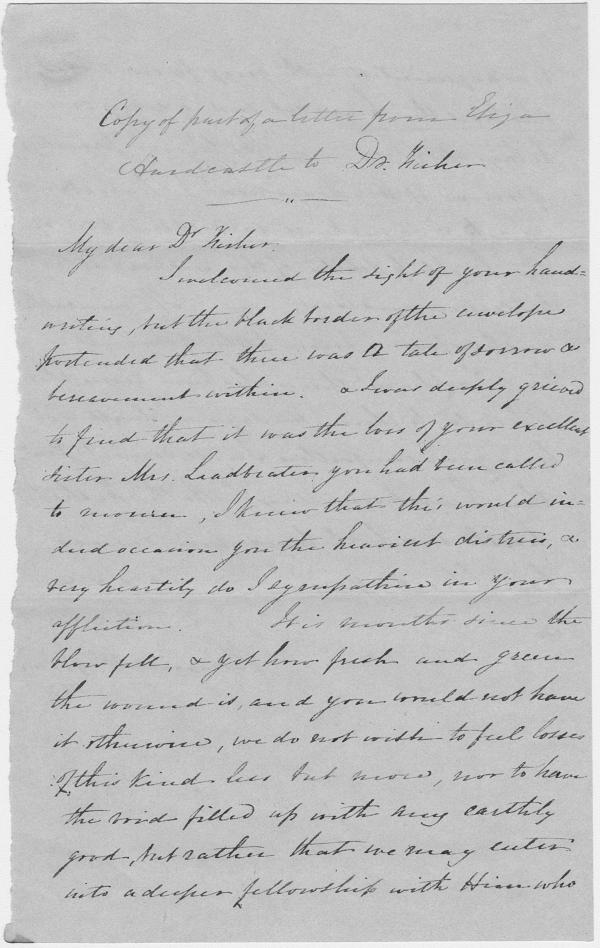 Copy of part of a letter from Eliza
Hardcastle to Dr. Fisher
My dear Dr Fisher.
I welcomed the sight of your hand=
writing, but the black border of the envelope
portended that there was a tale of sorrow &
bereavement within. & I was deeply grieved
to find that it was the loss of your excellent
sister Mrs. Leadbeater you had been called
to mourn, I knew that this would in-
deed occasion you the heaviest distress, &
very heartily do I sympathise in your
affliction. It is months since the
blow fell, & yet how fresh and green
the wound is, and you would not have
it otherwise, we do not wish to feel losses
of this kind less but more, nor to have
the void filled up with any earthly
good, but rather that we may enter
into a deeper fellowship with Him who